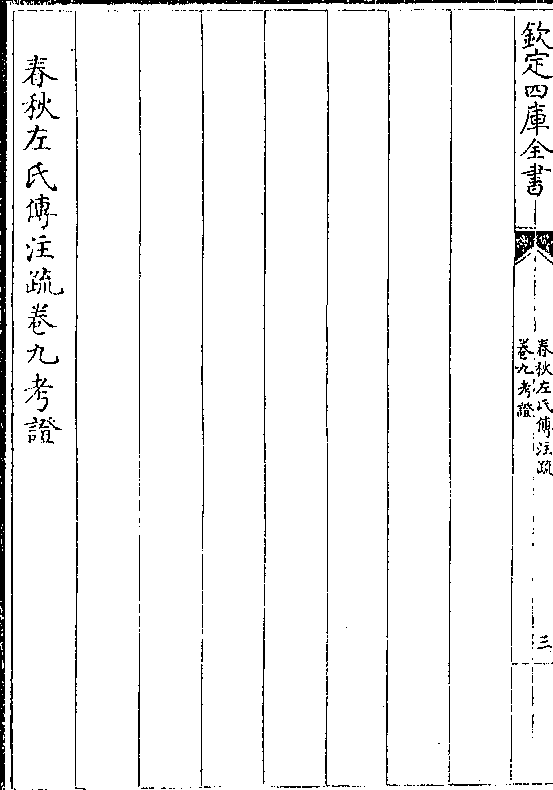 欽定四庫全書
春秋左氏傳注疏
卷九考證
三
春秋左氏傳注疏卷九考證